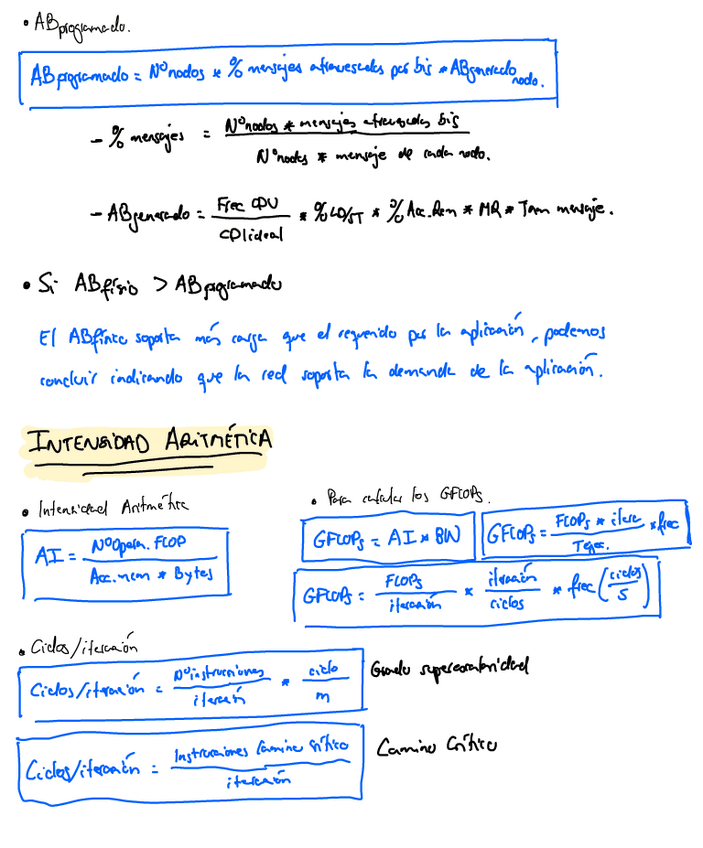 • ABprogramado.
ABprogramado = Nº nodos * % mensajes atraviesados por bis * ABgenerado nodo.
- % mensajes = Nº nodos * mensajes atraviesados bis / Nº nodos * mensaje de cada nodo.
- ABgenerado = Frec CPU / CPI ideal * % LD/ST * % Acc. Rem * MR * Tam mensaje.
• Si ABfísico > ABprogramado
El ABfísico soporta más carga que el requerido por la aplicación, podemos
concluir indicando que la red soporta la demanda de la aplicación.
INTENSIDAD ARITMÉTICA
• Intensidad Aritmética
AI = Nº Opera. FLOP / Acc. mem * Bytes
• Para calcular los GFLOPs.
GFLOPs = AI * BW
GFLOPs = FLOPs * itera / Tejec. * frec
GFLOPs = FLOPs / iteración * iteración / ciclos * frec (ciclos / s)
• Ciclos/iteración
Ciclos/iteración = Nº instrucciones / iteración * ciclo / m
Grado superescalaridad
Ciclos/iteración = Instrucciones Camino Crítico / iteración
Camino Crítico